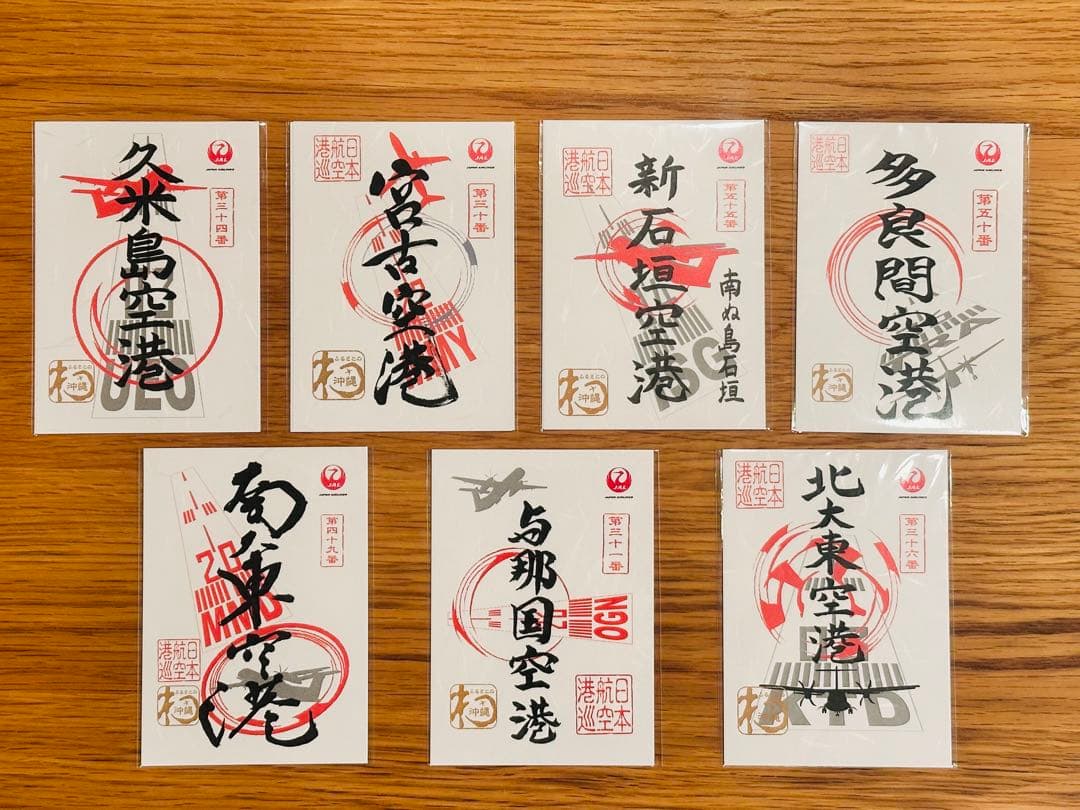 久米島空港
JAL
JAPAN AIRLINES
第三十四番
UEO
ふるさとの
沖縄
日本
航空
港巡
宮古空港
JAL
JAPAN AIRLINES
第三十番
MMY
ふるさとの
沖縄
日本
航空
港巡
新石垣空港
南ぬ島石垣
JAL
JAPAN AIRLINES
第五十五番
ISG
ふるさとの
沖縄
日本
航空
港巡
多良間空港
JAL
JAPAN AIRLINES
第五十番
ふるさとの
沖縄
南大東空港
JAL
JAPAN AIRLINES
第四十九番
20
MMD
日本
航空
港巡
ふるさとの
沖縄
与那国空港
JAL
JAPAN AIRLINES
第三十一番
OGN
ふるさとの
沖縄
日本
航空
港巡
日本
航空
港巡
北大東空港
JAL
JAPAN AIRLINES
第三十六番
KTD